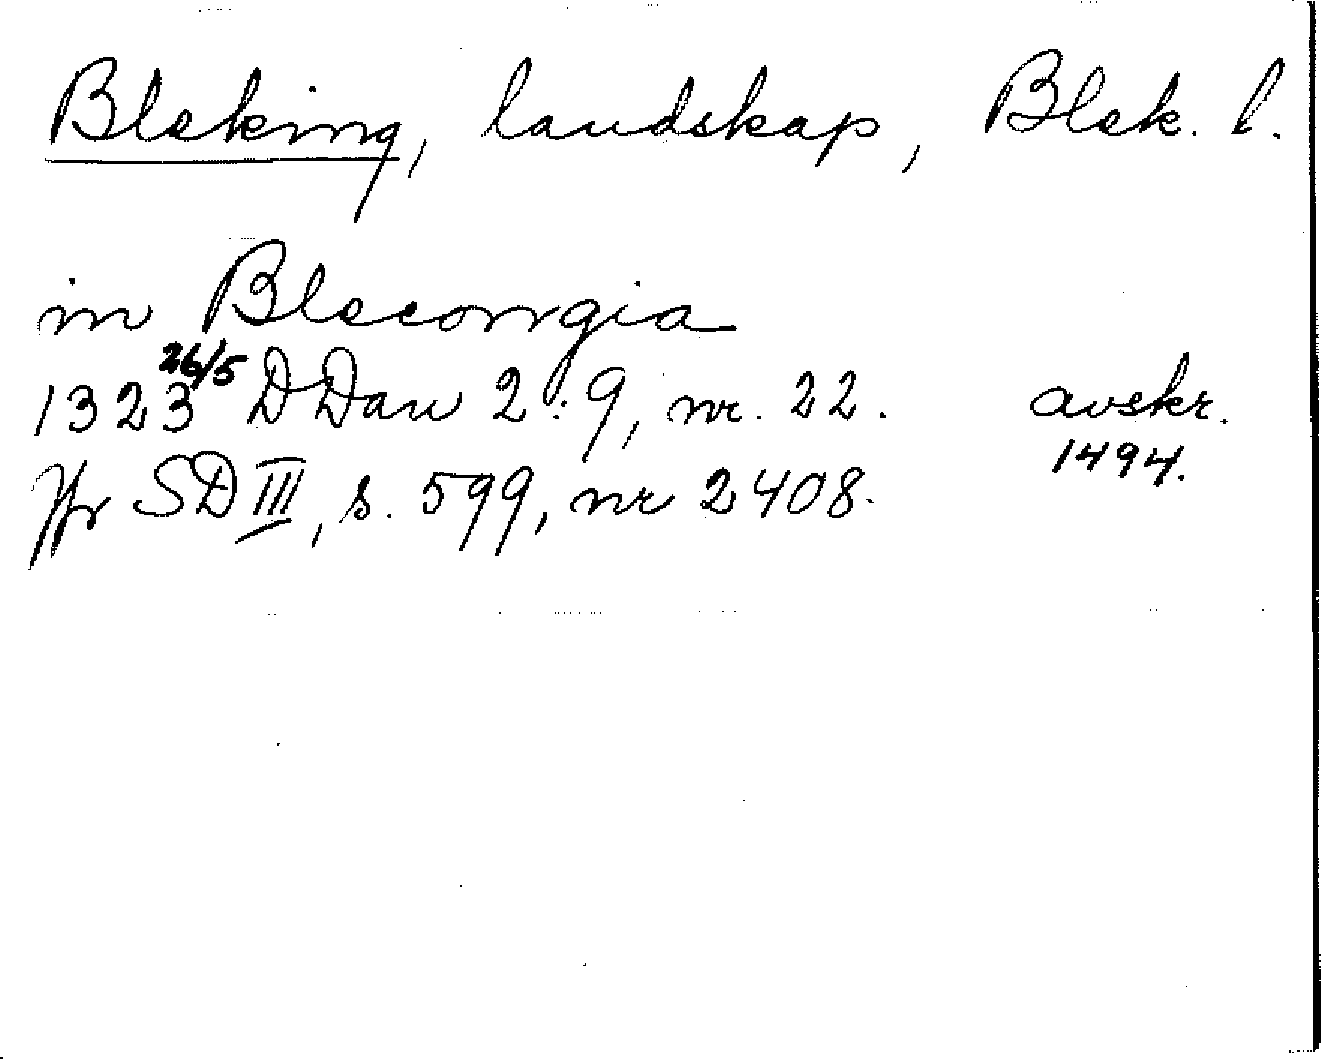 Bleking, landskap, Blek. l.
in Blecongia
1323 26/5 DDan 2:9, nr. 22. avskr.
1494.
Jfr SD III, s. 599, nr 2408.